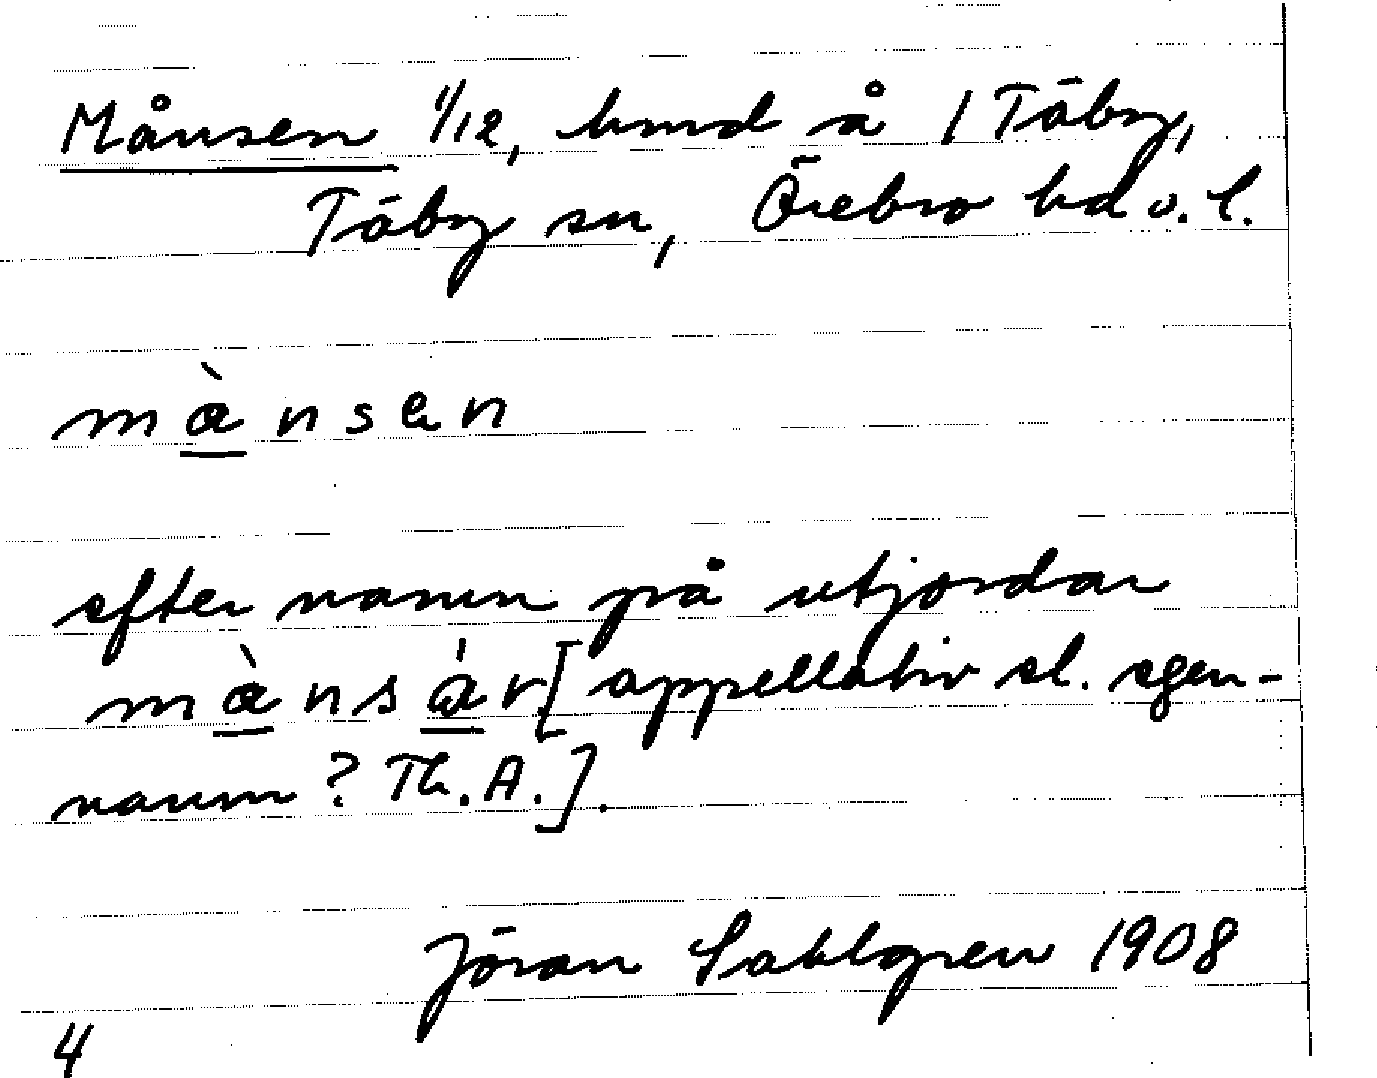 Månsen 1/12, hmd å 1 Täby,
Täby sn, Örebro hd o. l.
mànsen
efter namn på utjordar
mànsár [appellativ el. egen-
namn? Th. A.].
Jöran Sahlgren 1908
4